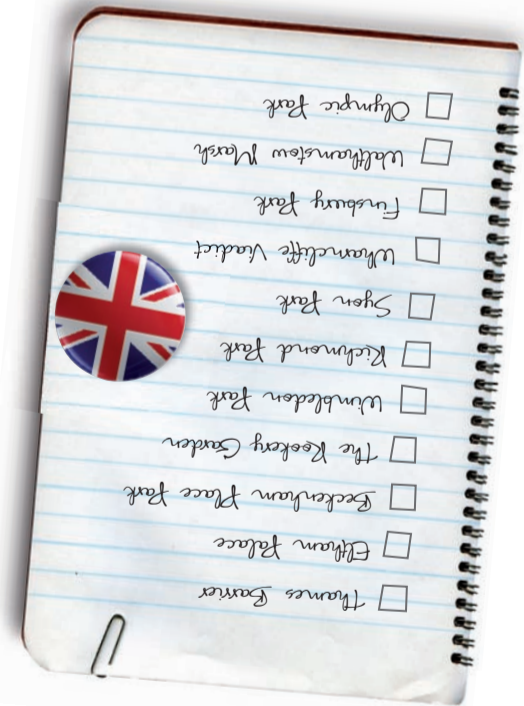 Thames Barrier
Eltham Palace
Beckenham Place Park
The Rookery Garden
Wimbledon Park
Richmond Park
Syon Park
Wharncliffe Viadict
Finsbury Park
Walthamstow Marsh
Olympic Park